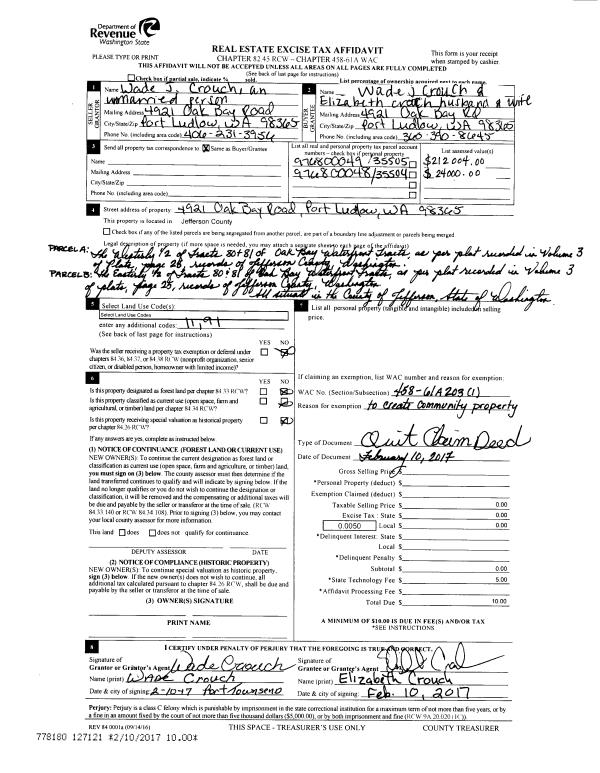 Department of
Revenue
Washington State
REAL ESTATE EXCISE TAX AFFIDAVIT
This form is your receipt
when stamped by cashier.
PLEASE TYPE OR PRINT
CHAPTER 82.45 RCW – CHAPTER 458-61A WAC
THIS AFFIDAVIT WILL NOT BE ACCEPTED UNLESS ALL AREAS ON ALL PAGES ARE FULLY COMPLETED
(See back of last page for instructions)
Check box if partial sale, indicate % sold.
List percentage of ownership acquired next to each name.
1
SELLER
GRANTOR
Name Wade J. Crouch, an
unmarried person
Mailing Address 4921 Oak Bay Road
City/State/Zip Port Ludlow, WA 98365
Phone No. (including area code) 406-231-3956
2
BUYER
GRANTEE
Name Wade J Crouch &
Elizabeth crouch husband & wife
Mailing Address 4921 Oak Bay Rd
City/State/Zip Port Ludlow, WA 98365
Phone No. (including area code) 360-390-8645
3
Send all property tax correspondence to: Same as Buyer/Grantee
Name
Mailing Address
City/State/Zip
Phone No. (including area code)
List all real and personal property tax parcel account
numbers – check box if personal property
List assessed value(s)
976800049/35505 $212004.00
976800048/35504 $24000.00
4
Street address of property 4921 Oak Bay Road, Port Ludlow, WA 98365
This property is located in Jefferson County
Check box if any of the listed parcels are being segregated from another parcel, are part of a boundary line adjustment or parcels being merged.
Legal description of property (if more space is needed, you may attach a separate sheet to each page of the affidavit)
PARCEL A: The Westerly 1/2 of Tracts 80 & 81 of Oak Bay Waterfront Tracts, as per plat recorded in Volume 3
of Plats, page 25, records of Jefferson County, Washington.
PARCEL B: The Easterly 1/2 of Tracts 80 & 81 of Oak Bay Waterfront Tracts, as per plat recorded in Volume 3
of plats, page 25, records of Jefferson County, Washington
All situate in the County of Jefferson, State of Washington.
5
Select Land Use Code(s):
Select Land Use Codes
enter any additional codes: 11, 91
(See back of last page for instructions)
YES NO
Was the seller receiving a property tax exemption or deferral under
chapters 84.36, 84.37, or 84.38 RCW (nonprofit organization, senior
citizen, or disabled person, homeowner with limited income)?
6
YES NO
Is this property designated as forest land per chapter 84.33 RCW?
Is this property classified as current use (open space, farm and
agricultural, or timber) land per chapter 84.34 RCW?
Is this property receiving special valuation as historical property
per chapter 84.26 RCW?
If any answers are yes, complete as instructed below.
(1) NOTICE OF CONTINUANCE (FOREST LAND OR CURRENT USE)
NEW OWNER(S): To continue the current designation as forest land or
classification as current use (open space, farm and agriculture, or timber) land,
you must sign on (3) below. The county assessor must then determine if the
land transferred continues to qualify and will indicate by signing below. If the
land no longer qualifies or you do not wish to continue the designation or
classification, it will be removed and the compensating or additional taxes will
be due and payable by the seller or transferor at the time of sale. (RCW
84.33.140 or RCW 84.34.108). Prior to signing (3) below, you may contact
your local county assessor for more information.
This land does does not qualify for continuance.
DEPUTY ASSESSOR DATE
(2) NOTICE OF COMPLIANCE (HISTORIC PROPERTY)
NEW OWNER(S): To continue special valuation as historic property,
sign (3) below. If the new owner(s) does not wish to continue, all
additional tax calculated pursuant to chapter 84.26 RCW, shall be due and
payable by the seller or transferor at the time of sale.
(3) OWNER(S) SIGNATURE
PRINT NAME
7
List all personal property (tangible and intangible) included in selling
price.
If claiming an exemption, list WAC number and reason for exemption:
WAC No. (Section/Subsection) 458-61A 203 (1)
Reason for exemption to create community property
Type of Document Quit Claim Deed
Date of Document February 10, 2017
Gross Selling Price $
*Personal Property (deduct) $
Exemption Claimed (deduct) $
Taxable Selling Price $ 0.00
Excise Tax : State $ 0.00
0.0050 Local $ 0.00
*Delinquent Interest: State $
Local $
*Delinquent Penalty $
Subtotal $ 0.00
*State Technology Fee $ 5.00
*Affidavit Processing Fee $
Total Due $ 10.00
A MINIMUM OF $10.00 IS DUE IN FEE(S) AND/OR TAX
*SEE INSTRUCTIONS
8
I CERTIFY UNDER PENALTY OF PERJURY THAT THE FOREGOING IS TRUE AND CORRECT.
Signature of
Grantor or Grantor's Agent Wade Crouch
Name (print) WADE Crouch
Date & city of signing: 2-10-17 Port Townsend
Signature of
Grantee or Grantee's Agent
Name (print) Elizabeth Crouch
Date & city of signing: Feb. 10, 2017
Perjury: Perjury is a class C felony which is punishable by imprisonment in the state correctional institution for a maximum term of not more than five years, or by
a fine in an amount fixed by the court of not more than five thousand dollars ($5,000.00), or by both imprisonment and fine (RCW 9A.20.020 (1C)).
REV 84 0001a (09/14/16)
THIS SPACE - TREASURER'S USE ONLY
COUNTY TREASURER
778180 127121 *2/10/2017 10.00*